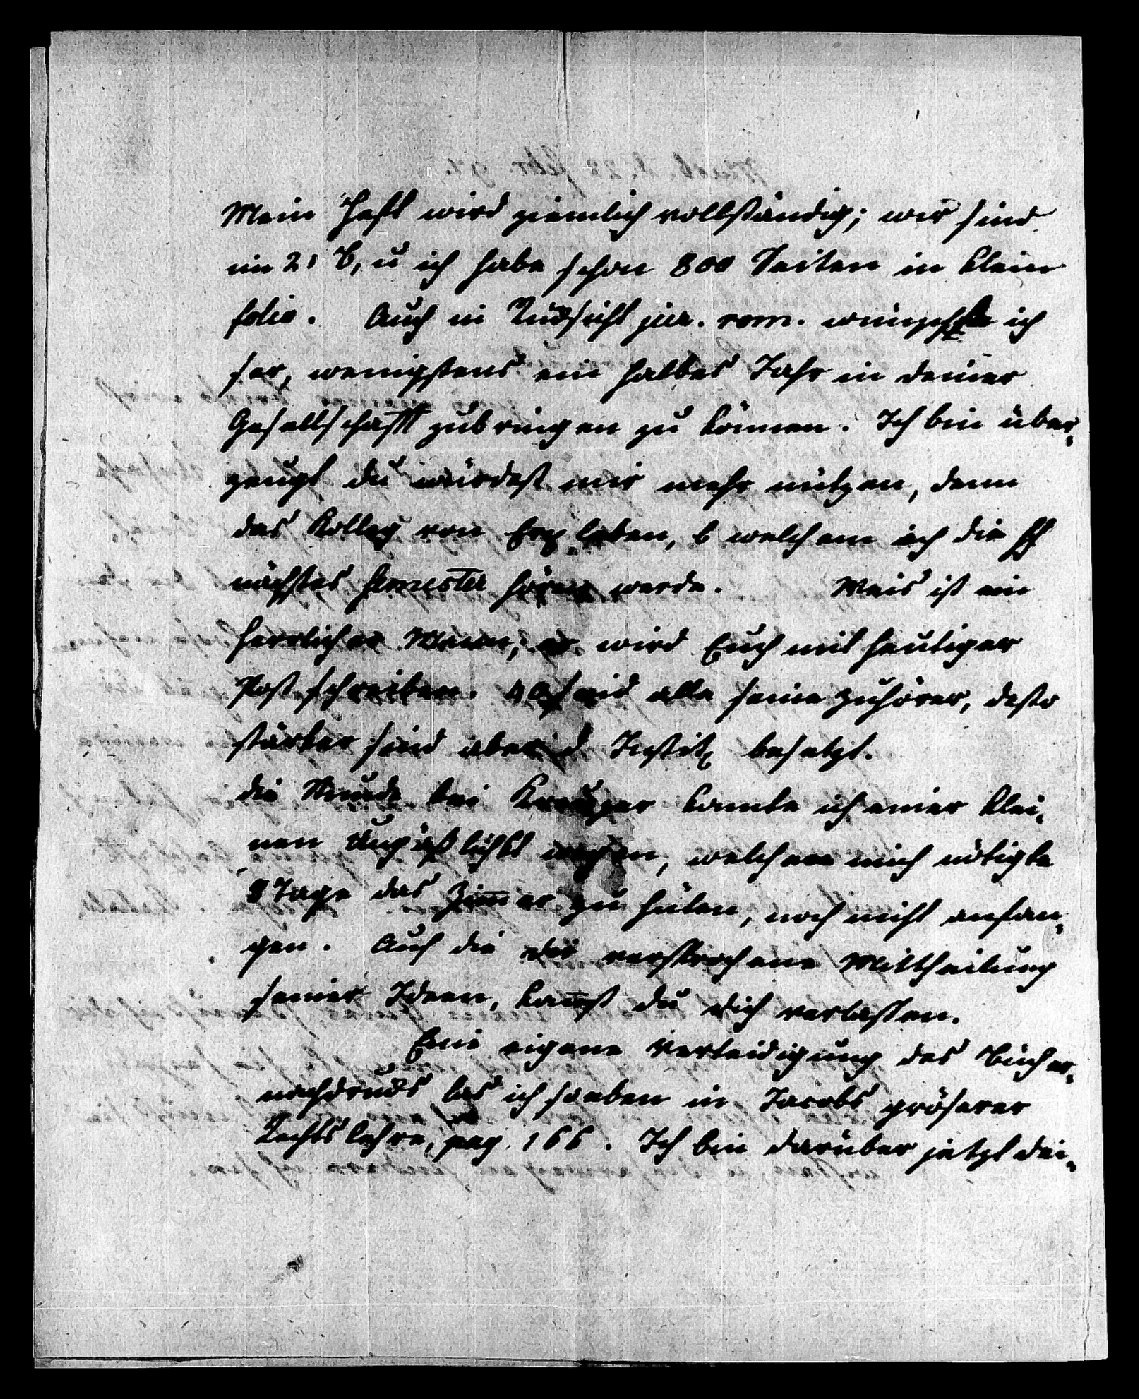 Mein Heft wird ziemlich vollständig; wir sind
im 21 B, u ich habe schon 800 Seiten in klein
folio. Auch in Rücksicht jur. rom. wünschte ich
ser, wenigstens ein halbes Jahr in deiner
Gesellschafft zubringen zu können. Ich bin über-
zeugt du würdest mir mehr nützen, denn
das Kolleg von Erxleben, b welchem ich die
nächstes Semester hören werde. Weis ist ein
herrlicher Mann, er wird Euch mit heutiger
Post schreiben. 40 sind alle seine Zuhörer, desto
stärker sind aber d Instit besetzt.
die Stunde bei Kreuzer konnte ich einer klei-
nen Unpäßlichkt wegen, welche mich nötigte
8 Tage das Zimmer zu hüten, noch nicht anfan-
gen. Auf die dir versprochene Mittheilung
seiner Ideen, kannst du dich verlassen.
Eine eigene Verteidigung des Bücher-
nachdrucks las ich soeben in Jacobs gröserer
Rechtslehre, pag. 166. Ich bin darüber jetzt dei-